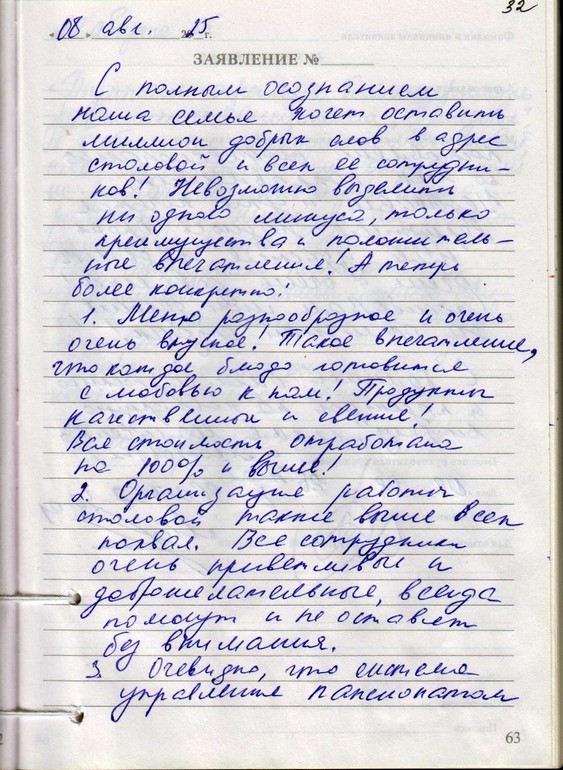 32
« 08 » авг. 2015 г.
ЗАЯВЛЕНИЕ №
С полным осознанием
наша семья хочет оставить
миллион добрых слов в адрес
столовой и всех её сотрудни-
ков! Невозможно выделить
ни одного минуса, только
преимущества и положитель-
ные впечатления! А теперь
более конкретно:
1. Меню разнообразное и очень
очень вкусное! Такое впечатление,
что каждое блюдо готовится
с любовью к нам! Продукты
качественные и свежие!
Вся стоимость отработана
на 100% и выше!
2. Организация работы
столовой также выше всех
похвал. Все сотрудники
очень приветливые и
доброжелательные, всегда
помогут и не оставят
без внимания.
3. Очевидно, что система
управления пансионатом
63